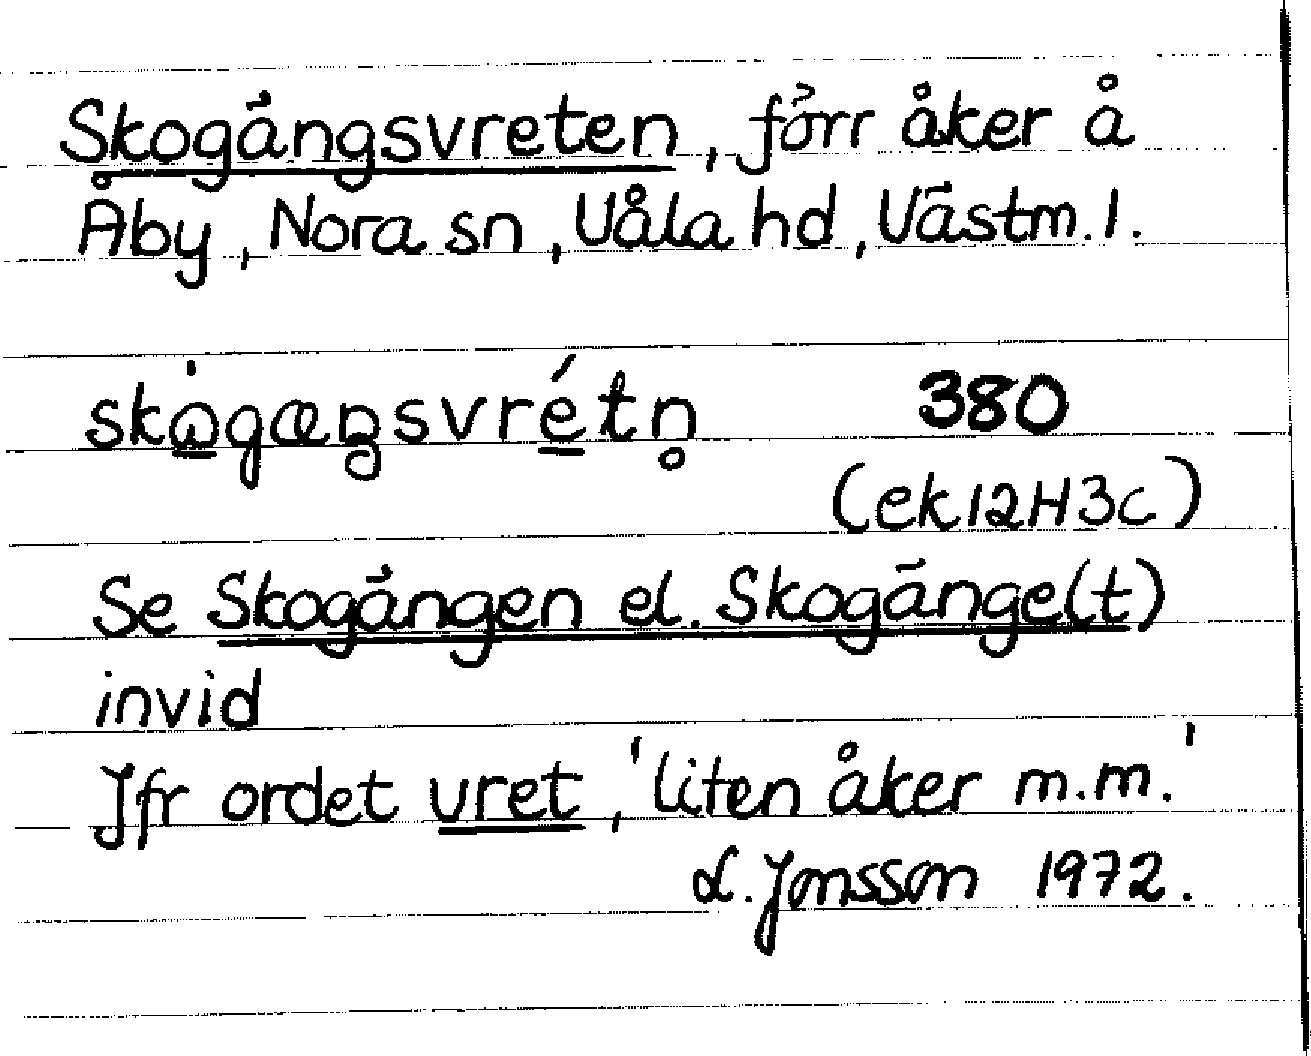 Skogängsvreten, förr åker å
Åby, Nora sn, Våla hd, Västm. l.
skògæŋsvrétn̥ 380
(ek 12H3c)
Se Skogängen el. Skogänge(t)
invid
Jfr ordet vret, 'liten åker m.m.'
L. Jonsson 1972.